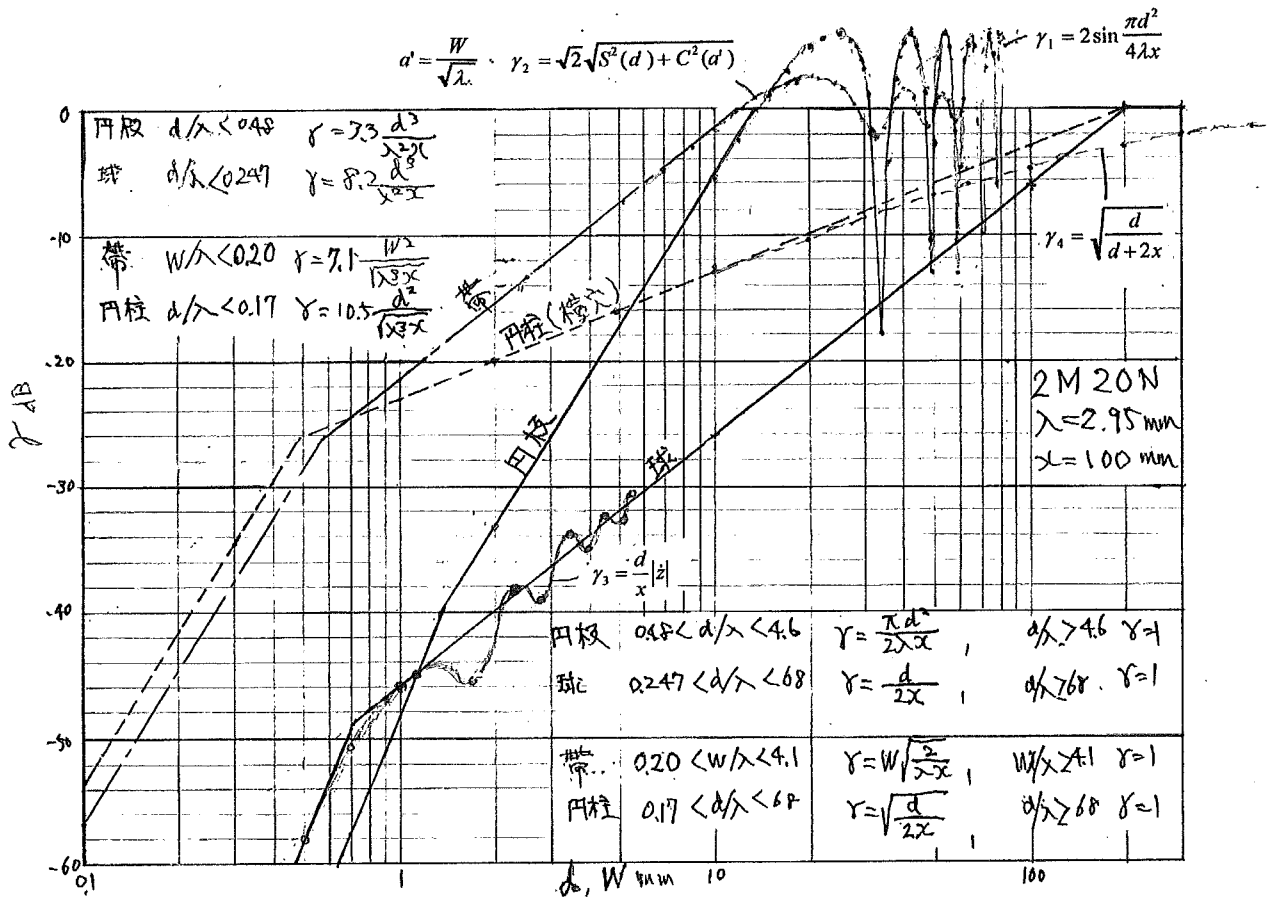 a' = W/√λ . γ₂ = √2 √(S²(d) + C²(a'))
γ₁ = 2sin πd²/4λx
円板 d/λ<0.48 γ=3.3 d³/λ²x
球 d/λ<0.247 γ=8.2 d³/λ²x
帯 W/λ<0.20 γ=7.1 W²/√λ³x
円柱 d/λ<0.17 γ=10.5 d²/√λ³x
γ₄ = √(d/(d+2x))
帯
円柱(横穴)
円板
球
2M20N
λ=2.95mm
x=100mm
γ₃ = d/x |ż|
円板 0.48<d/λ<4.6 γ=πd²/2λx , d/λ>4.6 γ=1
球 0.247<d/λ<68 γ=d/2x , d/λ>68. γ=1
帯.. 0.20<W/λ<4.1 γ=W√(2/λx) , W/λ>4.1 γ=1
円柱 0.17<d/λ<68 γ=√(d/2x) , d/λ>68 γ=1
γ dB
0
-10
-20
-30
-40
-50
-60
0.1
1
10
100
d, W mm